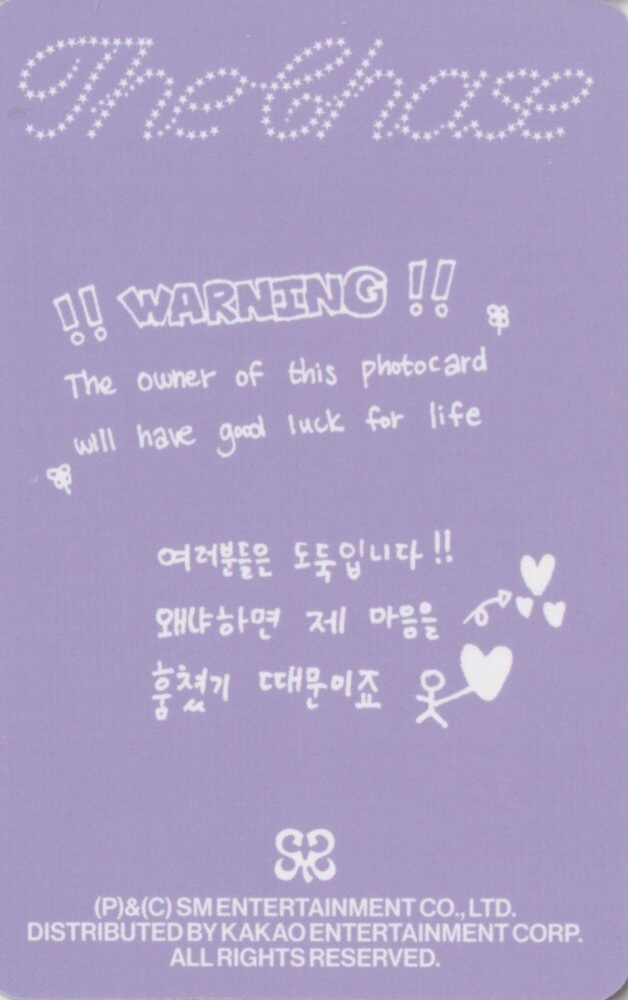 The Chase
!! WARNING !!
The owner of this photocard
will have good luck for life
여러분들은 도둑입니다!!
왜냐하면 제 마음을
훔쳤기 때문이죠
(P)&(C) SM ENTERTAINMENT CO., LTD.
DISTRIBUTED BY KAKAO ENTERTAINMENT CORP.
ALL RIGHTS RESERVED.